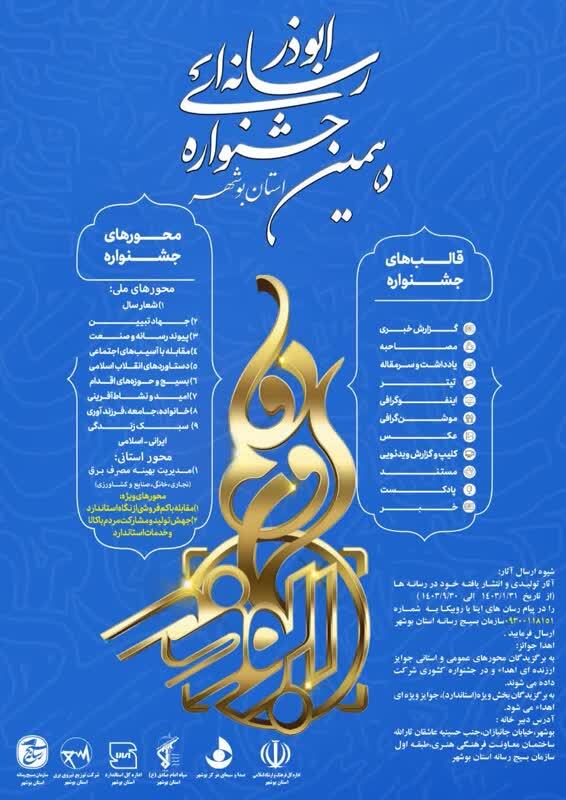 دهمین
جشنواره
رسانه‌ای
ابوذر
استان بوشهر
قالب‌های
جشنواره
گزارش خبری
مصاحبه
یادداشت و سرمقاله
تیتر
اینفوگرافی
موشن‌گرافی
عکس
کلیپ و گزارش ویدئویی
مستند
پادکست
خبر
محورهای
جشنواره
محورهای ملی:
۱) شعار سال
۲) جهاد تبیین
۳) پیوند رسانه و صنعت
۴) مقابله با آسیب‌های اجتماعی
۵) دستاوردهای انقلاب اسلامی
۶) بسیج و حوزه‌های اقدام
۷) امید و نشاط آفرینی
۸) خانواده، جامعه، فرزندآوری
۹) سبک زندگی
ایرانی - اسلامی
محور استانی:
۱) مدیریت بهینه مصرف برق
(تجاری، خانگی، صنایع و کشاورزی)
محورهای ویژه:
۱) مقابله با کم فروشی از نگاه استاندارد
۲) جهش تولید و مشارکت مردم با کالا
و خدمات استاندارد
شیوه ارسال آثار:
آثار تولیدی و انتشار یافته خود در رسانه ها
(از تاریخ ۱۴۰۳/۱/۳۱ الی ۱۴۰۳/۹/۳۰)
را در پیام رسان های ایتا یا روبیکا به شماره
۰۹۳۰۰۱۱۸۱۵۱ سازمان بسیج رسانه استان بوشهر
ارسال فرمایید.
اهدا جوائز:
به برگزیدگان محورهای عمومی و استانی جوایز
ارزنده ای اهداء و در جشنواره کشوری شرکت
داده می شوند.
به برگزیدگان بخش ویژه (استاندارد)، جوایز ویژه ای
اهداء می شود.
آدرس دبیر خانه:
بوشهر، خیابان جانبازان، جنب حسینیه عاشقان ثارالله
ساختمان معاونت فرهنگی هنری، طبقه اول
سازمان بسیج رسانه استان بوشهر
اداره کل فرهنگ و ارشاد اسلامی
استان بوشهر
صدا و سیمای مرکز بوشهر
سپاه امام صادق (ع)
استان بوشهر
اداره کل استاندارد
استان بوشهر
شرکت توزیع نیروی برق
استان بوشهر
سازمان بسیج رسانه
استان بوشهر